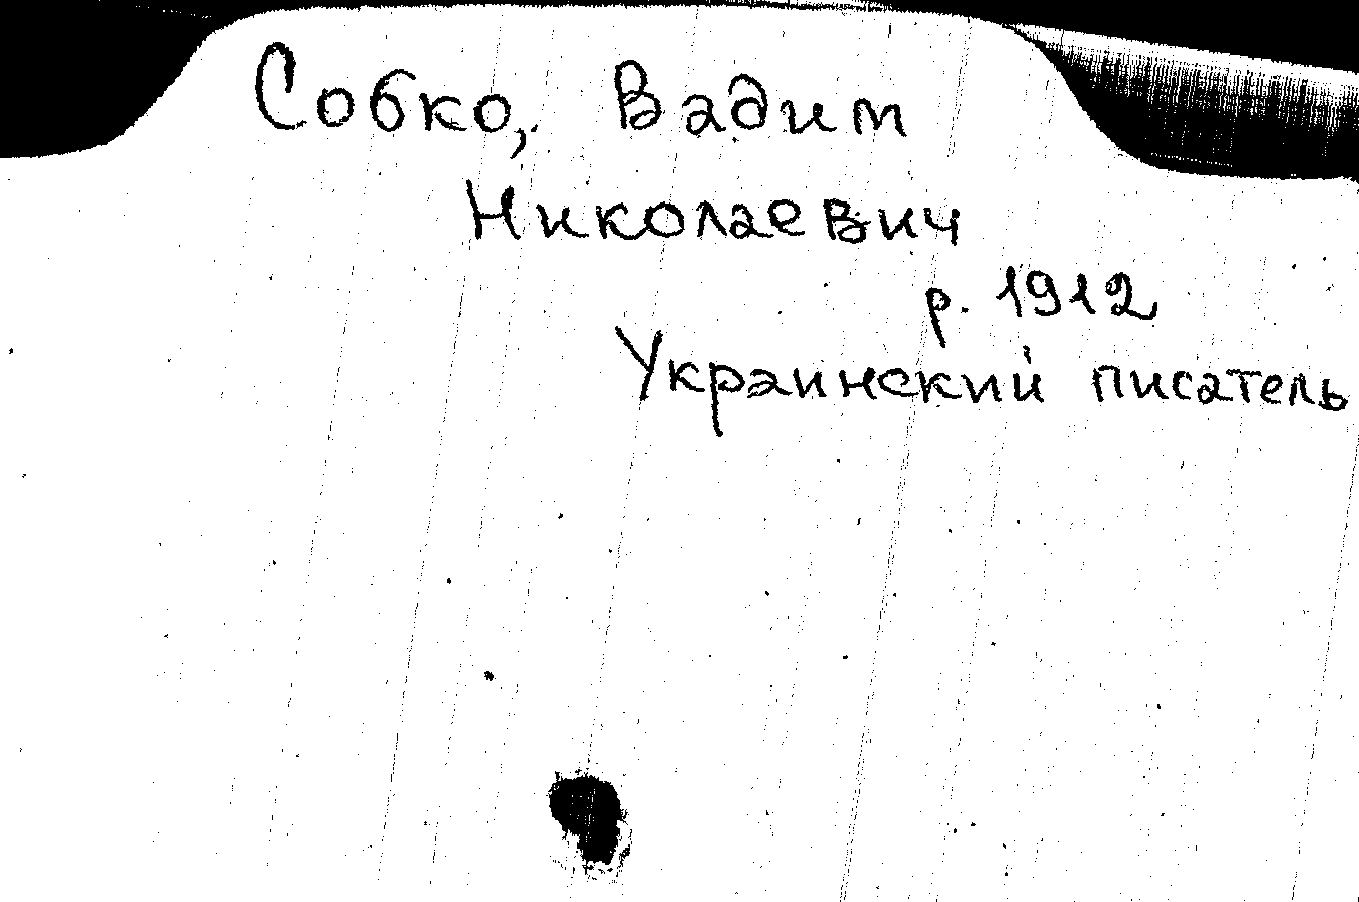 Собко, Вадим
Николаевич
р. 1912
Украинский писатель